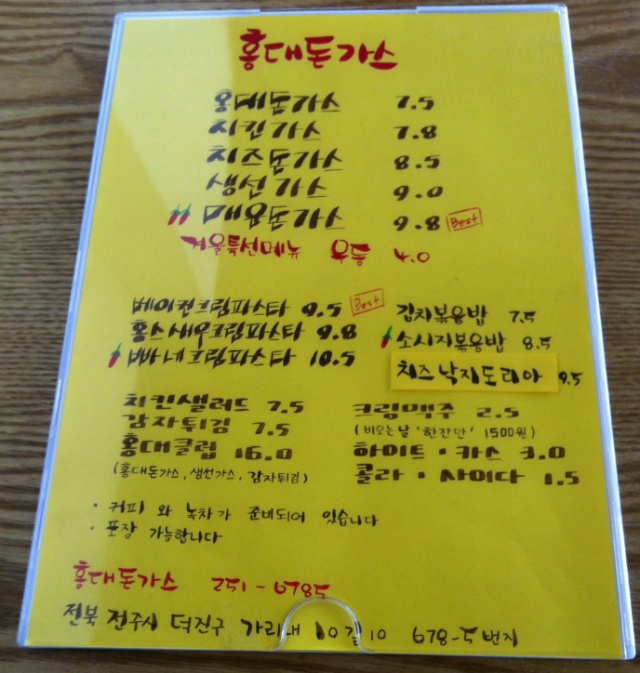 홍대돈가스
홍대돈가스 7.5
치킨가스 7.8
치즈돈가스 8.5
생선가스 9.0
매운돈가스 9.8 Best
겨울특선메뉴 우동 4.0
베이컨크림파스타 9.5 Best
홍스새우크림파스타 9.8
빠네크림파스타 10.5
김치볶음밥 7.5
소시지볶음밥 8.5
치즈낙지도리아 9.5
치킨샐러드 7.5
감자튀김 7.5
홍대클럽 16.0
(홍대돈가스, 생선가스, 감자튀김)
크림맥주 2.5
(비오는날 '한잔만' 1500원)
하이트·카스 3.0
콜라·사이다 1.5
· 커피 와 녹차가 준비되어 있습니다
· 포장 가능합니다
홍대돈가스 251-6785
전북 전주시 덕진구 가리내 10길 10 678-5번지